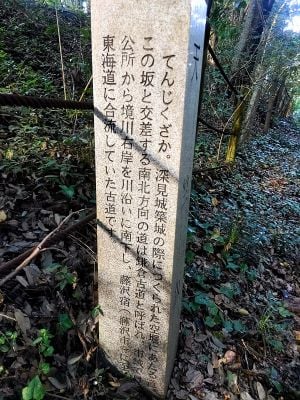 てんじくざか。深見城築城の際につくられた空堀にあたる
この坂と交差する南北方向の道は 古道と呼ばれ、市
公所から境川右岸を川沿いに南下し、藤沢宿(藤沢市)で
東海道に合流していた古道です